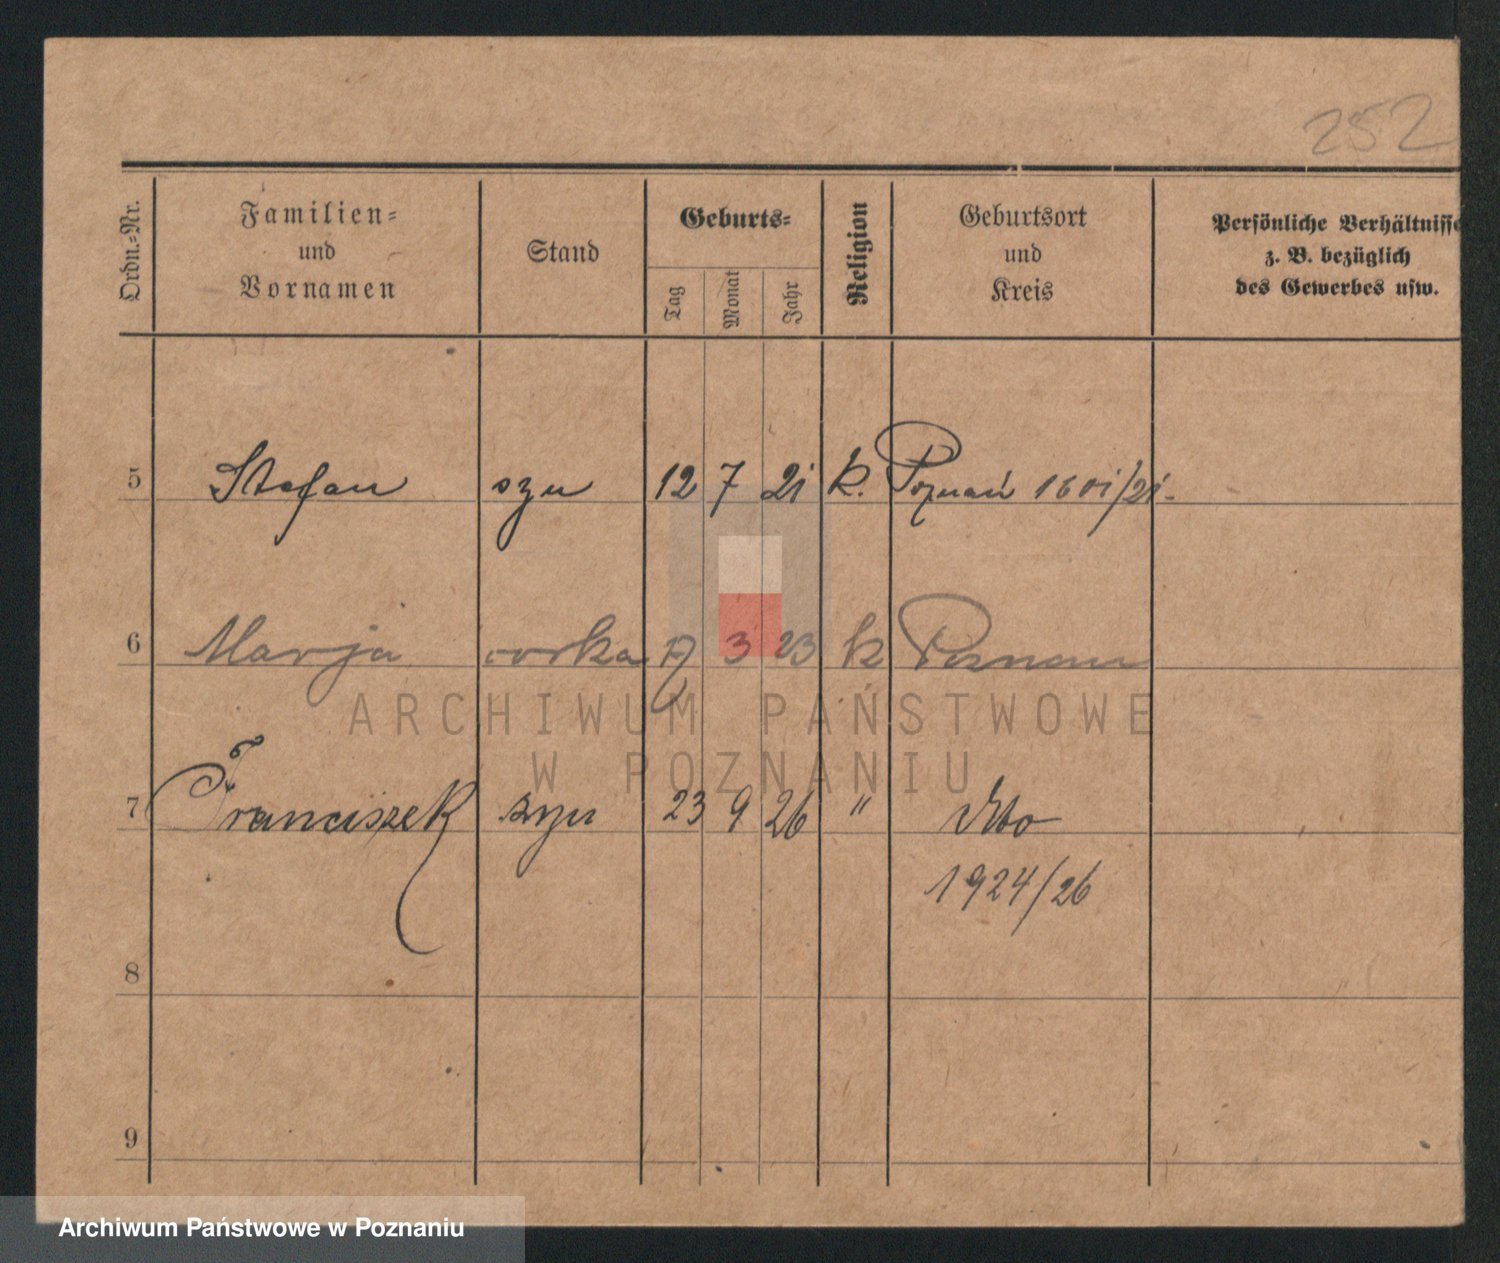 252
Ordn.-Nr.
Familien-
und
Vornamen
Stand
Geburts-
Tag
Monat
Jahr
Religion
Geburtsort
und
Kreis
Persönliche Verhältnisse
z. B. bezüglich
des Gewerbes usw.
5 Stefan syn 12 7 21 k. Poznań 1601/21.
6 Marja córka 3 23 k Poznań
7 Franciszek syn 23 9 26 "
1924/26
8
9
ARCHIWUM PAŃSTWOWE
W POZNANIU
Archiwum Państwowe w Poznaniu